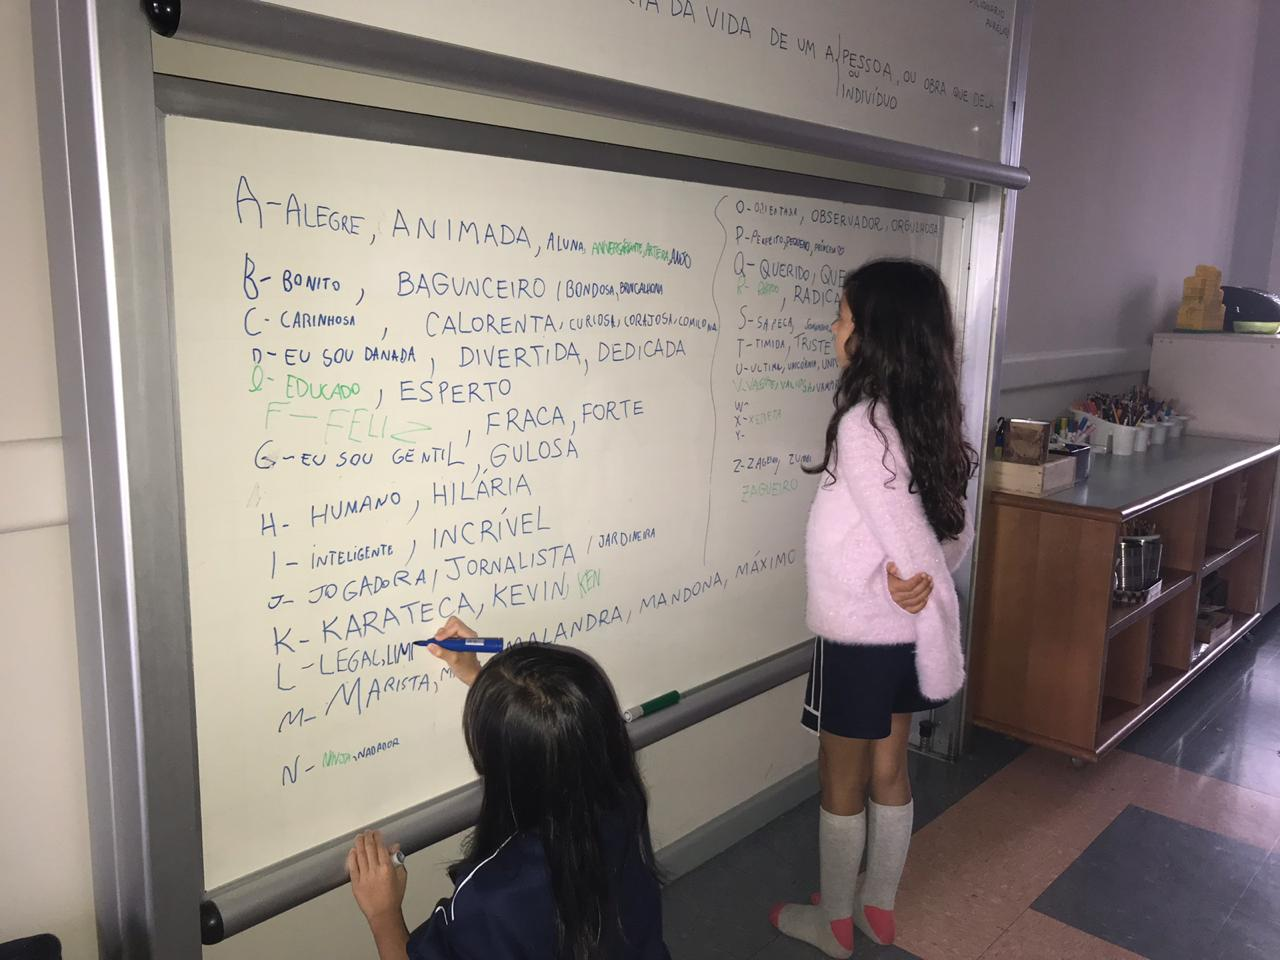 DA VIDA DE UM A PESSOA, OU OBRA QUE DELA
OU
INDIVÍDUO
A-ALEGRE, ANIMADA, ALUNA, ARTEIRA, ANJO
B-BONITO, BAGUNCEIRO, BONDOSA, BRINCALHONA
C-CARINHOSA, CALORENTA, CURIOSA, CORAJOSA, COMILONA
D-EU SOU DANADA, DIVERTIDA, DEDICADA
EDUCADO, ESPERTO
F-FELIZ, FRACA, FORTE
G-EU SOU GENTIL, GULOSA
H-HUMANO, HILÁRIA
I-INTELIGENTE, INCRÍVEL
J-JOGADORA, JORNALISTA, JARDINEIRA
K-KARATECA, KEVIN, KEN
L-LEGAL, LIMP
M-MARISTA, MALANDRA, MANDONA, MÁXIMO
N-NINJA, NADADOR
O- OBSERVADOR, ORGULHOSA
P-PERFEITO, PEQUENO,
Q-QUERIDO, QUE
R- RADICA
S-SAPECA,
T-TIMIDA, TRISTE
U-ULTIMA, UNICÓRNIA, UNIV
V-VALENTE, VALIOSA, VAMPIR
W-
X-XERETA
Y-
Z- ZUMBI
ZAGUEIRO